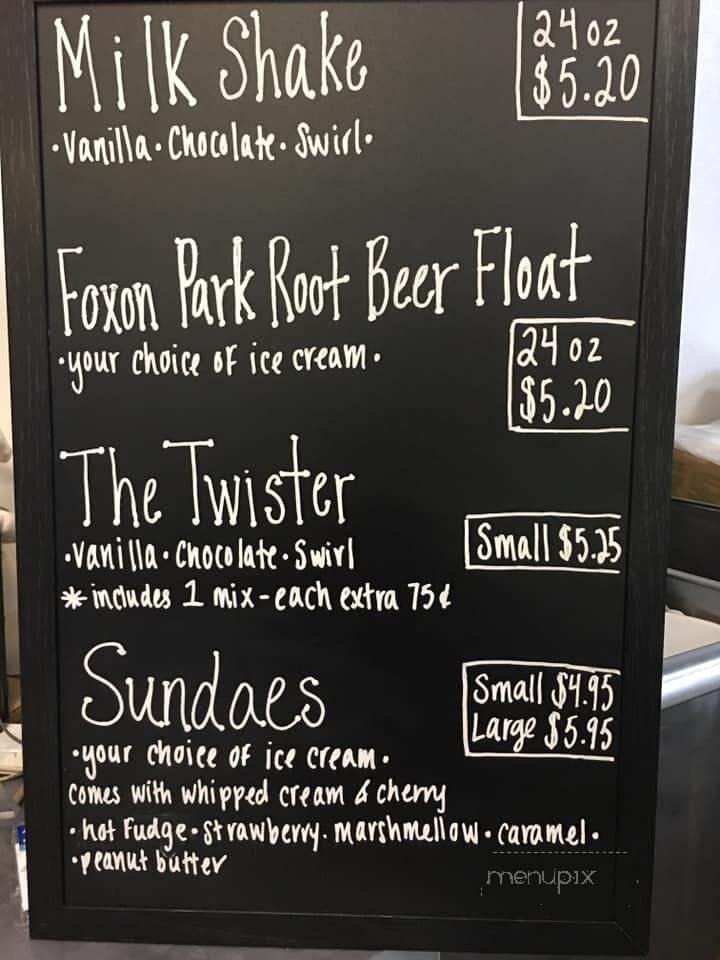 Milk Shake
24 oz
$5.20
·Vanilla·Chocolate·Swirl·
Foxon Park Root Beer Float
·your choice of ice cream·
24 oz
$5.20
The Twister
·Vanilla·Chocolate·Swirl
Small $5.25
* includes 1 mix-each extra 75¢
Sundaes
Small $4.95
Large $5.95
·your choice of ice cream·
comes with whipped cream & cherry
·hot fudge·strawberry·marshmellow·caramel·
·peanut butter
menupix